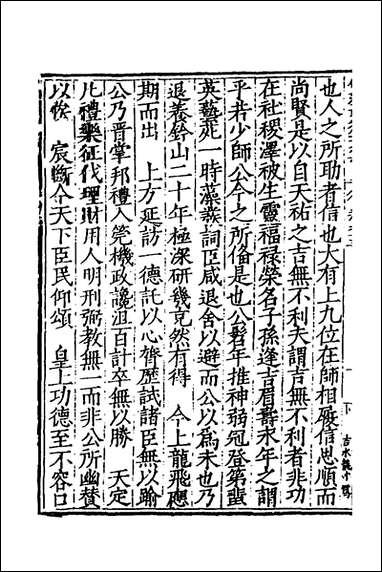 也人之所助者信也大有上九位在師相履信思順而
尚賢是以自天祐之吉無不利夫謂吉無不利者非功
在社稷澤被生靈福祿榮名子孫逢吉眉壽永年之謂
乎若少師公今之所僃是也公髫年推神弱冠登第蜚
英藝苑一時藻裁詞臣咸退舍以避而公以爲未也乃
退養鈐山二十年極深研幾充然有得　今上龍飛應
期而出　上方延訪一德託以心膂歷試諸臣無以踰
公乃晋掌邦禮入筦機政讒沮百計卒無以勝　天定
凢禮樂征伐理財用人明刑弼教無一而非公所幽賛
以悏　宸斷今天下臣民仰頌　皇上功德至不容口